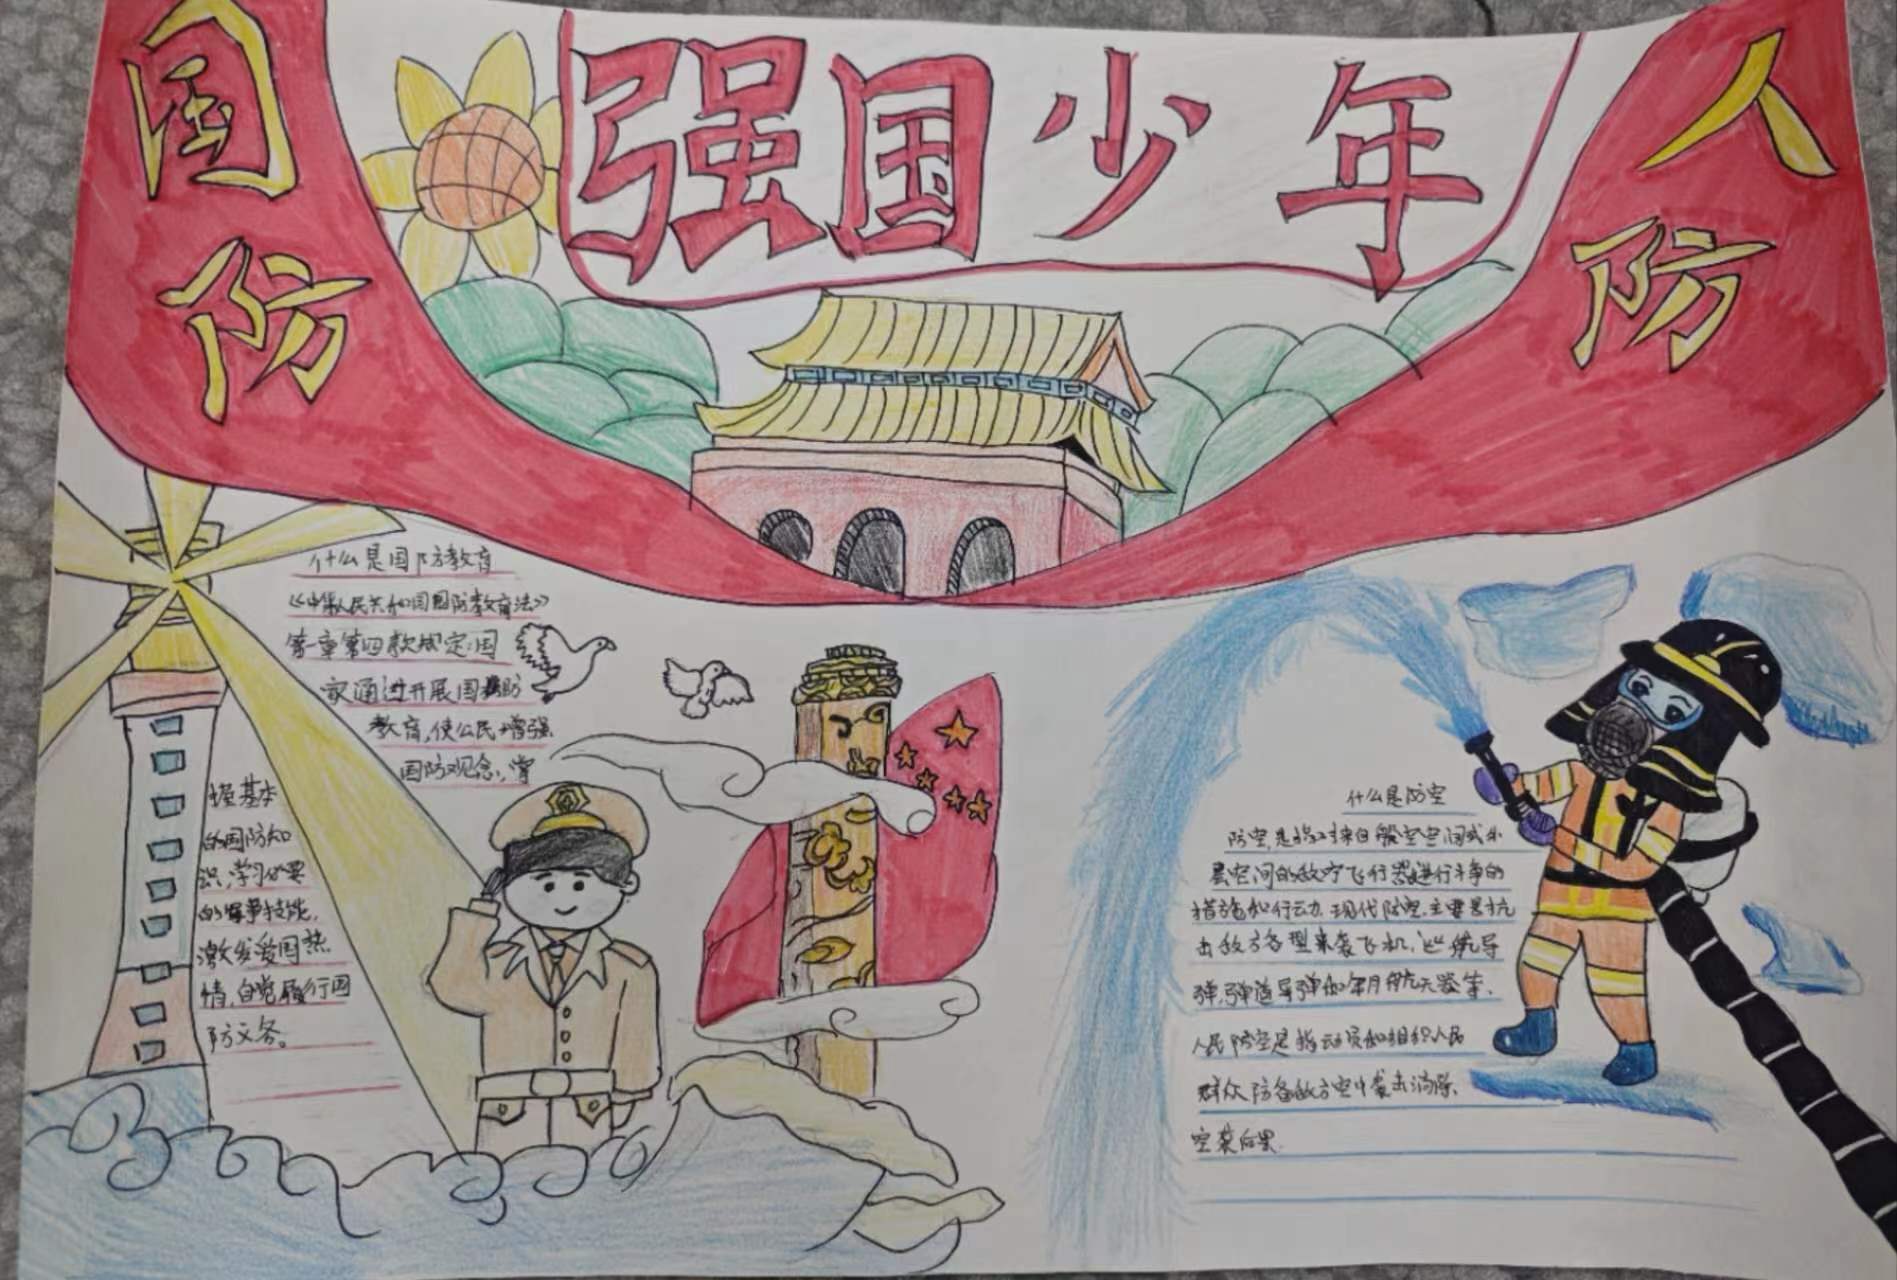 国防
强国少年
人防
什么是国防教育
《中华人民共和国国防教育法》
第一章第四款规定:国
家通过开展国防
教育,使公民增强
国防观念,掌
握基本
的国防知
识,学习必要
的军事技能,
激发爱国热
情,自觉履行国
防义务。
什么是防空
防空,是指对来自航空空间或外
层空间的敌方飞行器进行斗争的
措施和行动.现代防空.主要是抗
击敌方各型来袭飞机,巡航导
弹,弹道导弹和军用航天器等.
人民防空是指动员和组织人民
群众防备敌方空中袭击消除,
空袭后果.